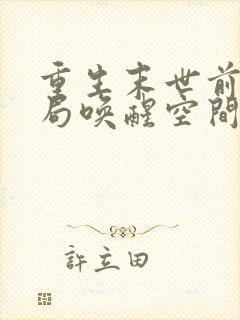 重生末世前
局唤醒空間
許立田